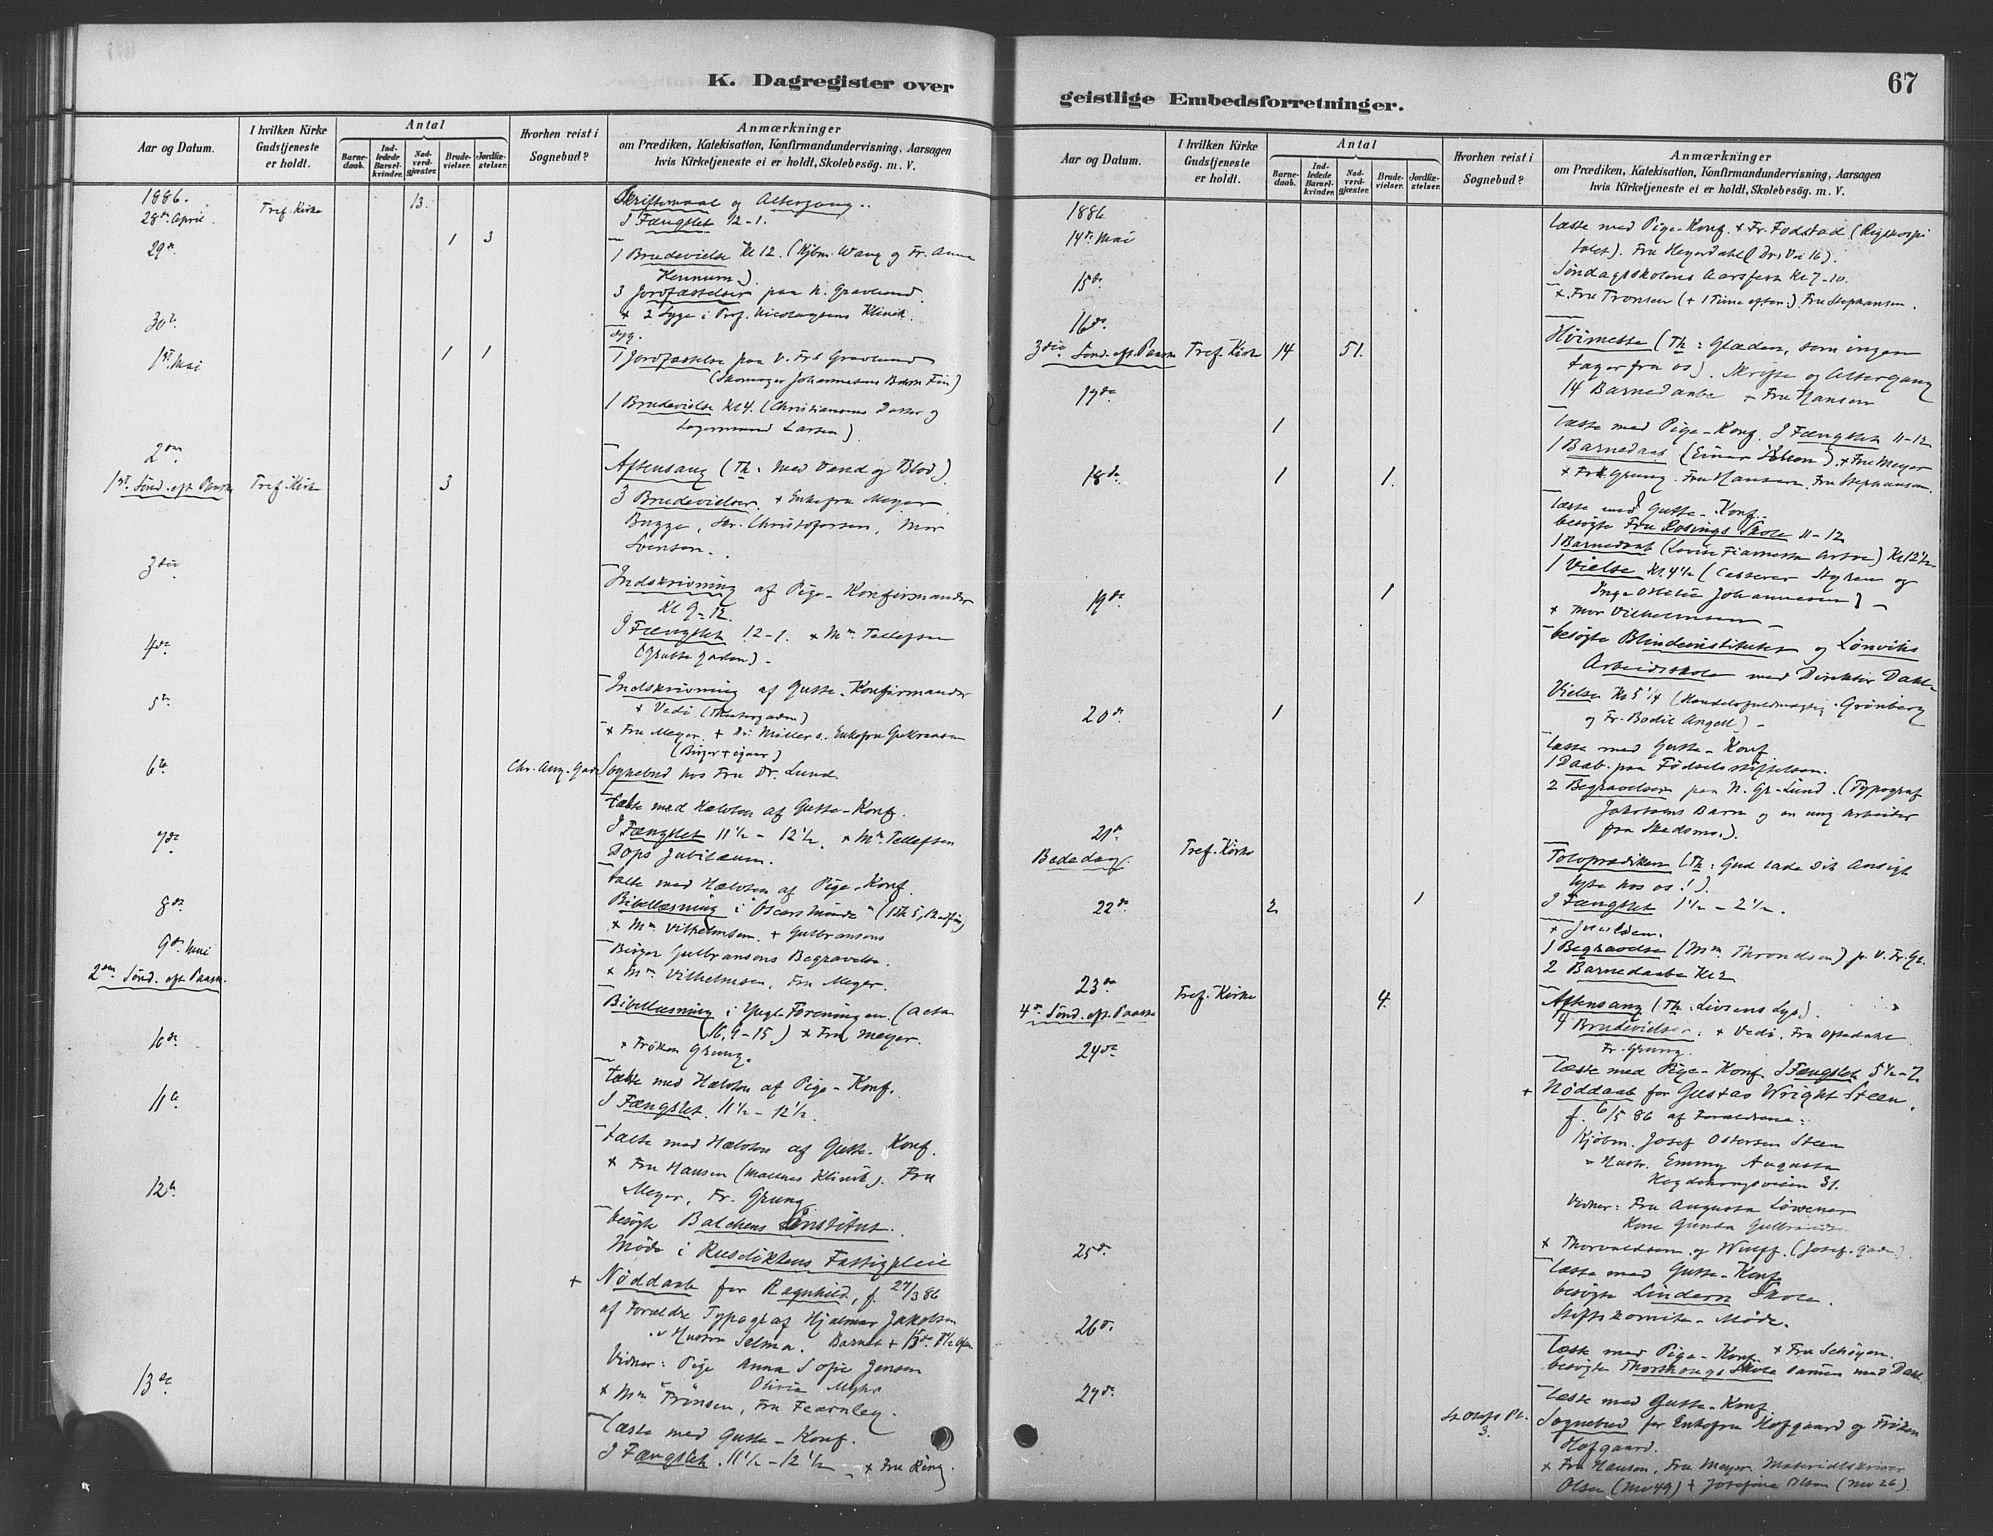 67
K. Dagregister over
geistlige Embedsforretninger.
Aar og Datum.
I hvilken Kirke Gudstjeneste er holdt.
Antal
Barnedaab.
Indledede Barselkvinder.
Nadverdgjæster.
Brudevielser.
Jordfæstelser.
Hvorhen reist i Sognebud?
Anmærkninger
om Prædiken, Katekisation, Konfirmandundervisning, Aarsagen
hvis Kirketjeneste ei er holdt, Skolebesøg. m. V.
1886.
28de April Tref. Kirke 13. Skriftemaal og Altergang.
I Fængslet 12-1.
29de 1 3 1 Brudevielse Kl 12. (Kjbm. Wang og Fr. Anna
Hennum)
3 Jordfæstelser paa N. Gravlund.
+ 2 Syge i Prof. Nicolaysens Klinik.
30te Syg.
1st Mai 1 1 1 Jordfæstelse paa V. Frs Gravlund
(Skomager Johannesens Barn Finn)
1 Brudevielse Kl 4. (Christiansens Datter og
Lagermand Larsen).
2den
1st. Sønd. eft. Paaske Tref. Kirke 3 Aftensang (Th: Med Vand og Blod).
3 Brudevielser. + Enkefru Meyer
Bugge, Christofersen, Mor
Svensen.
3die Indskrivning af Pige-Konfirmander
Kl 9-12.
I Fængslet 12-1. + Mm Tellefsen
4de Indskrivning af Gutte-Konfirmander
+ Vedø
5te + Fru Meyer. + Enkefru Gulbransen
6te Chr. Aug. Gade Sognebud hos Fru Dr. Lund.
læste med Halvdelen af Gutte-Konf.
I Fængslet 11½ - 12½. + Mm Tellefsen
7de Dops Jubilæum.
læste med Halvdelen af Pige-Konf.
8de Bibellæsning i "Oscars Minde"
+ Mm Vilhelmsen. + Gulbransens
9de Mai
2den Sønd. eft. Paaske. Birger Gulbransens Begravelse.
+ Mm Vilhelmsen, Fru Meyer.
Bibellæsning i Ynglforeningen. (Acta
16, 9-15.) + Fru Meyer.
+ Frøken Grung.
10de læste med Halvdelen af Pige-Konf.
I Fængslet. 11½ - 12½.
11te læste med Halvdelen af Gutte-Konf.
+ Fru Hansen (Malthes Klinik). Fru
Meyer, Fr. Grung
12te besøgte Balchens Institut.
Møde i Rusløkkens Fattigpleie
+ Nøddaab for Ragnhild, f. 27/3 86
af Forældre Typograf Hjalmar Jakobsen
og Hustru Selma. Barnet
Vidner: Pige Anna Sofie Jensen
Olivia Myhr
+ Mm Trønsen, Fru Fearnley.
13de læste med Gutte-Konf.
I Fængslet. 11½ - 12½ - + Fru Ring.
1886
14de Mai læste med Pige-Konf. + Fr. Fodstad (Rigshospi
talet). Fru Heyerdahl
15de Søndagsskolens Aarsfest Kl 7-10.
+ Fru Tronsen (+ 1 Time efter.) Fru Stephansen.
16de
3die Sønd. eft. Paaske Tref. Kirke 14 51. Høimesse (Th: Glæden, som ingen
tager fra os). Skrifte og Altergang
14 Barnedaabe + Fru Hansen
17de 1 læste med Pige-Konf. I Fængslet 11-12
1 Barnedaab (Einar Olsen). + Fru Meyer
+ Frk Grung. Fru Hansen. Fru Stephansen.
18de 1 1. læste med Gutte-Konf.
besøgte Fru Rosings Skole 11-12.
1 Barnedaab Kl 12½
1 Vielse Kl. 4½ (Casserer Styren og
Inga Otelie Johannesen) -
+ Mor Vilhelmsen -
19de 1 besøgte Blindeinstitutet og Lønviks
Arbeidsskole med Direktør Dahl -
Vielse Kl 5¼ (Handelsfuldmægtig Grønberg
og Fr. Bodil Angell) -
20de 1 læste med Gutte-Konf
1 Daab. paa Fødselsstiftelsen.
2 Begravelser paa N. Gr-Lund. (Typograf
Jakobsens Barn og en ung Arbeider
fra Skedsmo.).
21de
Bededag. Tref. Kirke Tolvprædiken (Th: Gud lade Dit Ansigt
lyse hos os!).
I Fængslet 1½ - 2½.
22de 2 1 1 Begravelse (Mm Throndsen) p. V. Fr. Gr.
2 Barnedaabe Kl 2
23de
4de Sønd. eft. Paaske Tref. Kirke 4. Aftensang (Th: Livsens Lys).
4 Brudevielser: + Vedø, Fru Opsdahl
Fr. Grung.
24de læste med Pige-Konf. I Fængslet 5½-7.
+ Nøddaab for Gustav Wright Steen,
f. 6/5 86 af Forældrene:
Kjøbm. Josef Ostersen Steen
Hustr. Emmy Augusta
Hegdehaugsveien 31.
Vidner: Fru Augusta Løvener
Kone Gunda Gulbrandsen
+ Thorvaldsen og Wulff. (Josef. Gade).
25de læste med Gutte-Konf
besøgte Lindern Skole.
Stiftskomite-Møde.
26de læste med Pige-Konf + Fru Schøyen.
besøgte Thorshaugs Skole sammen med Dahl.
27de læste med Gutte-Konf
St Olafs Pl. 3. Sognebud for Enkefru Hofgaard og Frøken
Hofgaard.
+ Fru Hansen, Fru Meyer. Materialskriver
Olsen (Mv 49) + Josefine Olsen (Mv 26)